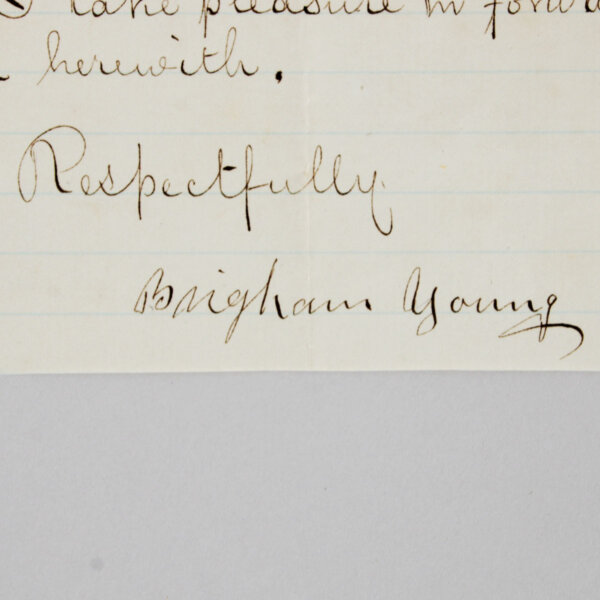 I take pleasure in forwa
herewith.
Respectfully
Brigham Young